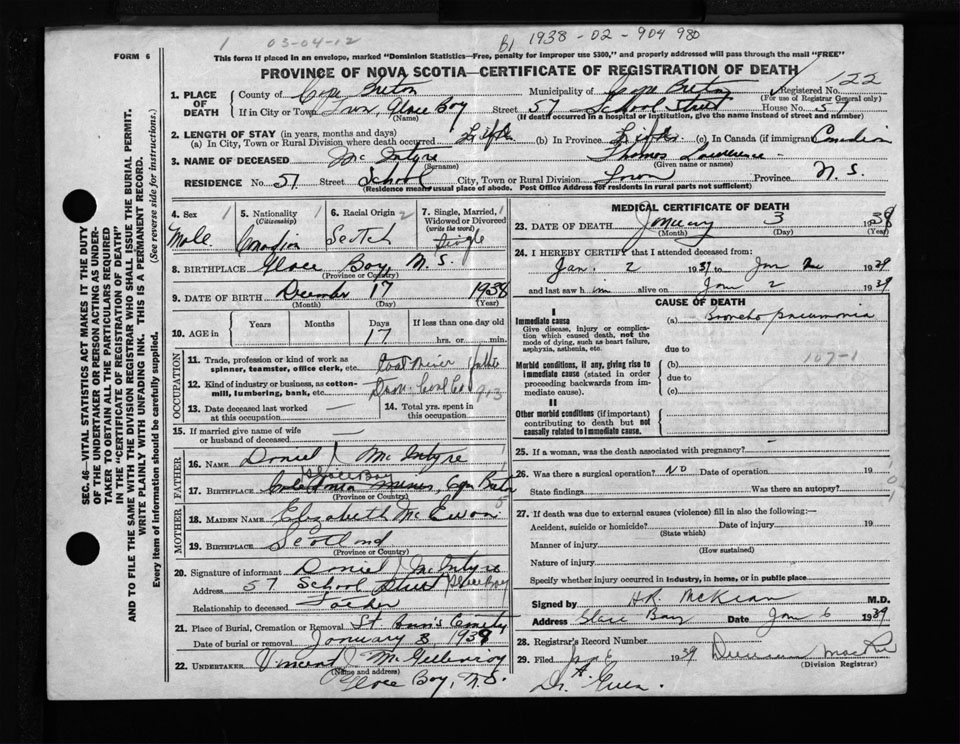 1 03-04-12 B1 1938-02-904 980
FORM 6
This form if placed in an envelope, marked "Dominion Statistics—Free, penalty for improper use $300," and properly addressed will pass through the mail "FREE"
PROVINCE OF NOVA SCOTIA—CERTIFICATE OF REGISTRATION OF DEATH
SEC. 46—VITAL STATISTICS ACT MAKES IT THE DUTY
OF THE UNDERTAKER OR PERSON ACTING AS UNDER-
TAKER TO OBTAIN ALL THE PARTICULARS REQUIRED
IN THE "CERTIFICATE OF REGISTRATION OF DEATH"
AND TO FILE THE SAME WITH THE DIVISION REGISTRAR WHO SHALL ISSUE THE BURIAL PERMIT.
WRITE PLAINLY WITH UNFADING INK. THIS IS A PERMANENT RECORD.
Every item of Information should be carefully supplied. (See reverse side for instructions.)
1. PLACE OF DEATH County of Cape Breton Municipality of Cape Breton Registered No. 122
(For use of Registrar General only)
If in City or Town Town, Glace Bay Street 57 School Street House No. 57
(Name) (If death occurred in a hospital or institution, give the name instead of street and number)
2. LENGTH OF STAY (in years, months and days)
(a) In City, Town or Rural Division where death occurred Life (b) In Province Life (c) In Canada (if immigrant) Canadian
3. NAME OF DECEASED Mc Intyre Thomas Lawrence
(Surname) (Given name or names)
RESIDENCE No. 57 Street School City, Town or Rural Division Town Province N. S.
(Residence means usual place of abode. Post Office Address for residents in rural parts not sufficient)
4. Sex 1 5. Nationality 1 6. Racial Origin 2 7. Single, Married, 1
(Citizenship) Widowed or Divorced
(write the word)
Male Canadian Scotch Single
8. BIRTHPLACE Glace Bay, N. S.
(Province or Country)
9. DATE OF BIRTH December 17 1938
(Month) (Day) (Year)
10. AGE in Years Months Days If less than one day old
17 hrs. or min.
OCCUPATION
11. Trade, profession or kind of work as
spinner, teamster, office clerk, etc. Coal Miner Father
12. Kind of industry or business, as cotton-
mill, lumbering, bank, etc. Dom. Coal Co 913
13. Date deceased last worked
at this occupation —
14. Total yrs. spent in
this occupation
15. If married give name of wife
or husband of deceased —
FATHER
16. NAME Daniel J Mc Intyre
Glace Bay
17. BIRTHPLACE Caledonia Mines, Cape Breton
(Province or Country)
MOTHER
18. MAIDEN NAME Elizabeth Mc Ewan
19. BIRTHPLACE Scotland
(Province or Country)
20. Signature of informant Daniel J McIntyre
Address 57 School Street Glace Bay
Relationship to deceased Father
21. Place of Burial, Cremation or Removal St Ann's Cemetery
Date of burial or removal January 3 1939
22. UNDERTAKER Vincent J McGillivray
(Name and address)
Glace Bay, N.S.
MEDICAL CERTIFICATE OF DEATH
23. DATE OF DEATH January 3 1939
(Month) (Day) (Year)
24. I HEREBY CERTIFY that I attended deceased from:
Jan. 2 1939 to Jan 1939
and last saw h im alive on Jan 2 1939
CAUSE OF DEATH
I
Immediate cause (a) Broncho pneumonia
Give disease, injury or complica-
tion which caused death, not the
mode of dying, such as heart failure,
asphyxia, asthenia, etc. due to
107-1
Morbid conditions, if any, giving rise to (b)
immediate cause (stated in order due to
proceeding backwards from im-
mediate cause). (c)
II
Other morbid conditions (if important)
contributing to death but not
causally related to immediate cause.
25. If a woman, was the death associated with pregnancy? —
26. Was there a surgical operation? No Date of operation 19
State findings Was there an autopsy?
27. If death was due to external causes (violence) fill in also the following:—
Accident, suicide or homicide? Date of injury 19
(State which)
Manner of injury
(How sustained)
Nature of injury
Specify whether injury occurred in industry, in home, or in public place
Signed by HR. McKean M.D.
Address Glace Bay Date Jan 6 1939
28. Registrar's Record Number
29. Filed Jan 6 1939 Duncan MacRae
(Division Registrar)
Dr. A. Green.